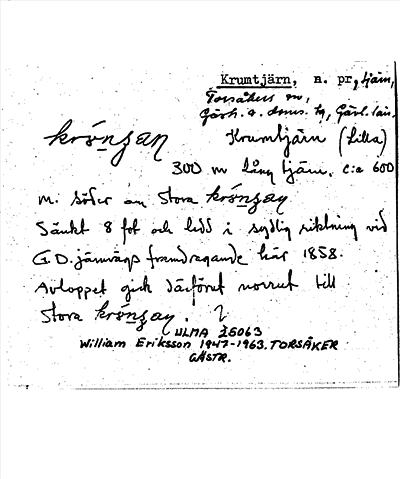 Krumtjärn, n. pr., tjärn,
Torsåkers sn,
Gästr. Gävl. län.
krónʒan Krumtjärn (Lilla)
300 m lång tjärn, c:a 600
m. söder om Stora krónʒan
Sänkt 8 fot och ledd i sydlig riktning vid
G.D. järnvägs framdragande här 1858.
Avloppet gick därförut norrut till
Stora krónʒan.
ULMA 25063
William Eriksson 1947-1963. TORSÅKER
GÄSTR.